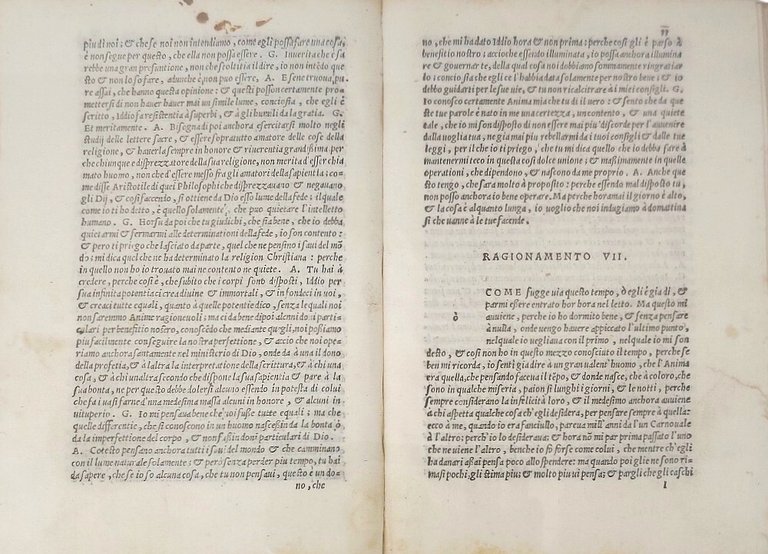 piu di noi; & che se noi non intendiamo, come egli possa fare una cosa,
e non segue per questo, che ella non possa essere. G. In verità che sa
rebbe una gran presuntione, non che stoltitia il dire, io non intẽdo que
sto & non lo so fare, adunche è non puo essere. A. E sene truova pu
re assai, che hanno questa opinione: & questi posson certamente pro
mettersi di non hauer hauer mai un simile lume, conciosia, che egli è
scritto, Iddio fa resistentia à superbi, & à gli humili da la gratia. G.
Et meritamente. A. Bisogna di poi anchora esercitarsi molto negli
studij delle lettere sacre, & essere sopra tutto amatore delle cose della
religione, & hauerla sempre in honore & riuerentia grandissima per
che chiunque è disprezzatore della sua religione, non merita d'esser chia
mato huomo, non che d'essere messo fra gli amatori della sapientia: co=
me disse Aristotile di quei Philosophi che disprezzauano & negauano
gli Dij, & cosi facendo, si ottiene da Dio esso lume della fede: il quale
come io ti ho detto, è quello solamente, che puo quietare l'intelletto
humano. G. Horsu da poi che tu giudichi, che sia bene, che io debba
quietarmi & fermarmi alle determinationi della fede, io son contento:
& pero ti priego che lasciato da parte, quel che ne pensino i saui del mõ
do; mi dica quel che ne ha determinato la religion Christiana: perche
in quello non ho io trouato mai ne contento ne quiete. A. Tu hai à
credere, perche cosi è, che subito che i corpi sono disposti, Iddio per
sua infinita potentia ci crea diuine & immortali, & infondeci in voi,
& creaci tutte equali, quanto à quelle potentie dico, senza le quali noi
non saremmo Anime ragioneuoli: ma ci da bene dipoi alcenni doni parti=
culari per benefitio nostro, conoscẽdo che mediante quegli, noi possiamo
piu facilmente conseguire la nostra perfettione, & accio che noi ope=
riamo anchora santamente nel ministerio di Dio, onde da à una il dono
della profetia, & à l'altra la interpretatione della scrittura, & à chi una
cosa, & à chi un'altra secondo che dispone la sua sapientia & pare à la
sua bonta, ne per questo debbe dolersene alcuno essendo in potesta di colui
che fa i uasi farne d'una medesima massa alcuni in honore, & alcuni in
uituperio. G. Io mi pensaua bene che voi fuste tutte equali; ma che
quelle differentie, che si conoscono in un huomo nascessĩn da la bonta ò
da la imperfettione del corpo, & non fussin doni particulari di Dio.
A. Cotesto pensano anchora tutti i saui del mondo & che camminano
con il lume naturale solamente; & però senza perder piu tempo, tu hai
da sapere, che se io so alcuna cosa, che tu non pensaui, questo è un do=
no, che
77
no, che mi ha dato Iddio hora & non prima: perche cosi gli è parso à
benefitio nostro: accioche essendo illuminata, io possa anchora illumina
re & gouernar te, della qual cosa noi dobbiamo sommamente ringratiar
lo: conciosia che egli ce l'habbia data solamente per nostro bene; & io
debbo guidarti per le sue uie, & tu non ricalcitrare à i miei consigli. G.
Io conosco certamente Anima mia che tu di il uero: & sento che da que
ste tue parole è nato in me una certezza, un contento, & una quiete
tale, che io mi son disposto di non essere mai piu discorde per l'auuenire
dalla uoglia tua, ne giamai piu rebellarmi da i tuoi consigli & dalle tue
leggi, per il che io ti priego, che tu mi dica quello che io debba fare à
mantenermi teco in questa cosi dolce unione; & massimamente in quelle
operationi, che dipendono, & nascono da me proprio. A. Anche que
sto tengo, che sara molto à proposito: perche essendo mal disposto tu,
non posso anchora io bene operare. Ma perche horamai il giorno è alto,
& la cosa è alquanto lunga, io uoglio che noi indugiamo à domattina
si che uanne à le tue facende.
RAGIONAMENTO VII.
COME fugge uia questo tempo, ò egli è gia dì, &
parmi essere entrato hor hora nel letto. Ma questo mi
ò
auuiene, perche io ho dormito bene, & senza pensare
à nulla, onde uengo hauere appiccato l'ultimo punto,
nel quale io uegliaua con il primo, nel quale io mi son
desto, & cosi non ho in questo mezzo conosciuto il tempo, perche se
ben mi ricorda, io senti gia dire à un gran ualent' huomo, che l'Anima
era quella, che pensando faceua il tẽpo, & donde nasce, che à coloro, che
sono in qualche miseria, paion si lunghi i giorni, & le notti, perche
sempre considerano la infelicità loro, & il medesimo anchora auuiene
à chi aspetta qualche cosa ch'egli desidera, per pensare sempre à quella:
ecco à me, quando io era fanciullo, pareua mill'anni da l'un Carnouale
à l'altro; perch'io lo desideraua: & hora nõ mi par prima passato l'uno
che ne uiene l'altro, benche io fo forse come colui, che mentre ch'egli
ha danari assai pensa poco allo spendere: ma quando poi glie ne sono ri=
masi pochi, gli stima piu; & molto piu ui pensa; & pargli che gli caschi
I